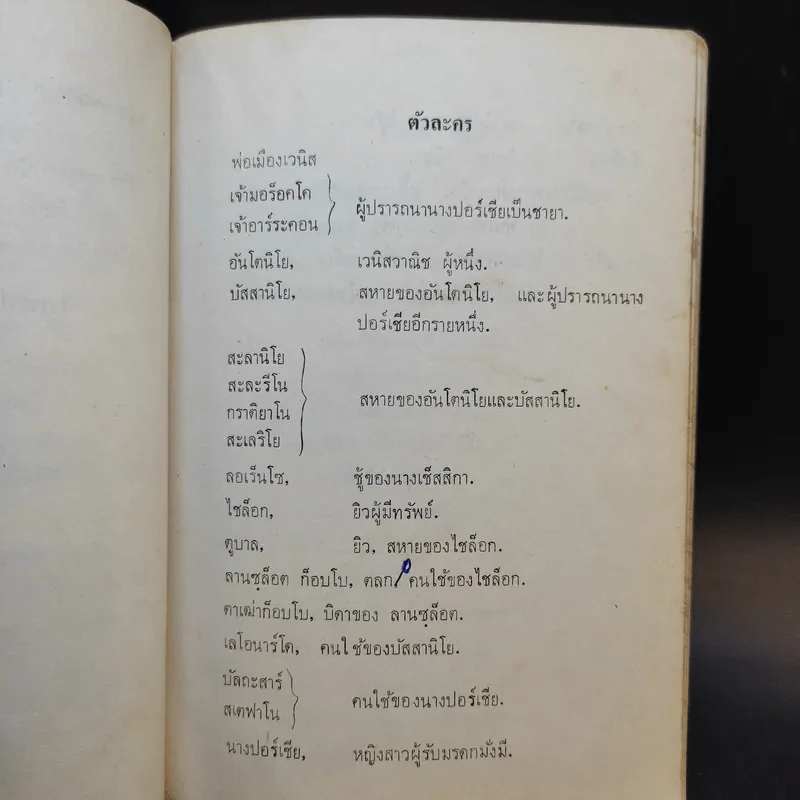 ตัวละคร
พ่อเมืองเวนิส
เจ้ามอร็อคโค
เจ้าอาร์ระคอน
ผู้ปรารถนานางปอร์เชียเป็นชายา.
อันโตนิโย, เวนิสวาณิช ผู้หนึ่ง.
บัสสานิโย, สหายของอันโตนิโย, และผู้ปรารถนานาง
ปอร์เชียอีกรายหนึ่ง.
สะลานิโย
สะละรีโน
กราติยาโน
สะเลริโย
สหายของอันโตนิโยและบัสสานิโย.
ลอเร็นโซ, ชู้ของนางเช็สสิกา.
ไชล็อก, ยิวผู้มีทรัพย์.
ตูบาล, ยิว, สหายของไชล็อก.
ลานซฺล็อต ก็อบโบ, ตลก คนใช้ของไชล็อก.
ตาเฒ่าก็อบโบ, บิดาของ ลานซฺล็อต.
เลโอนาร์โด, คนใช้ของบัสสานิโย.
บัลถะสาร์
สเตฟาโน
คนใช้ของนางปอร์เชีย.
นางปอร์เชีย, หญิงสาวผู้รับมรดกมั่งมี.